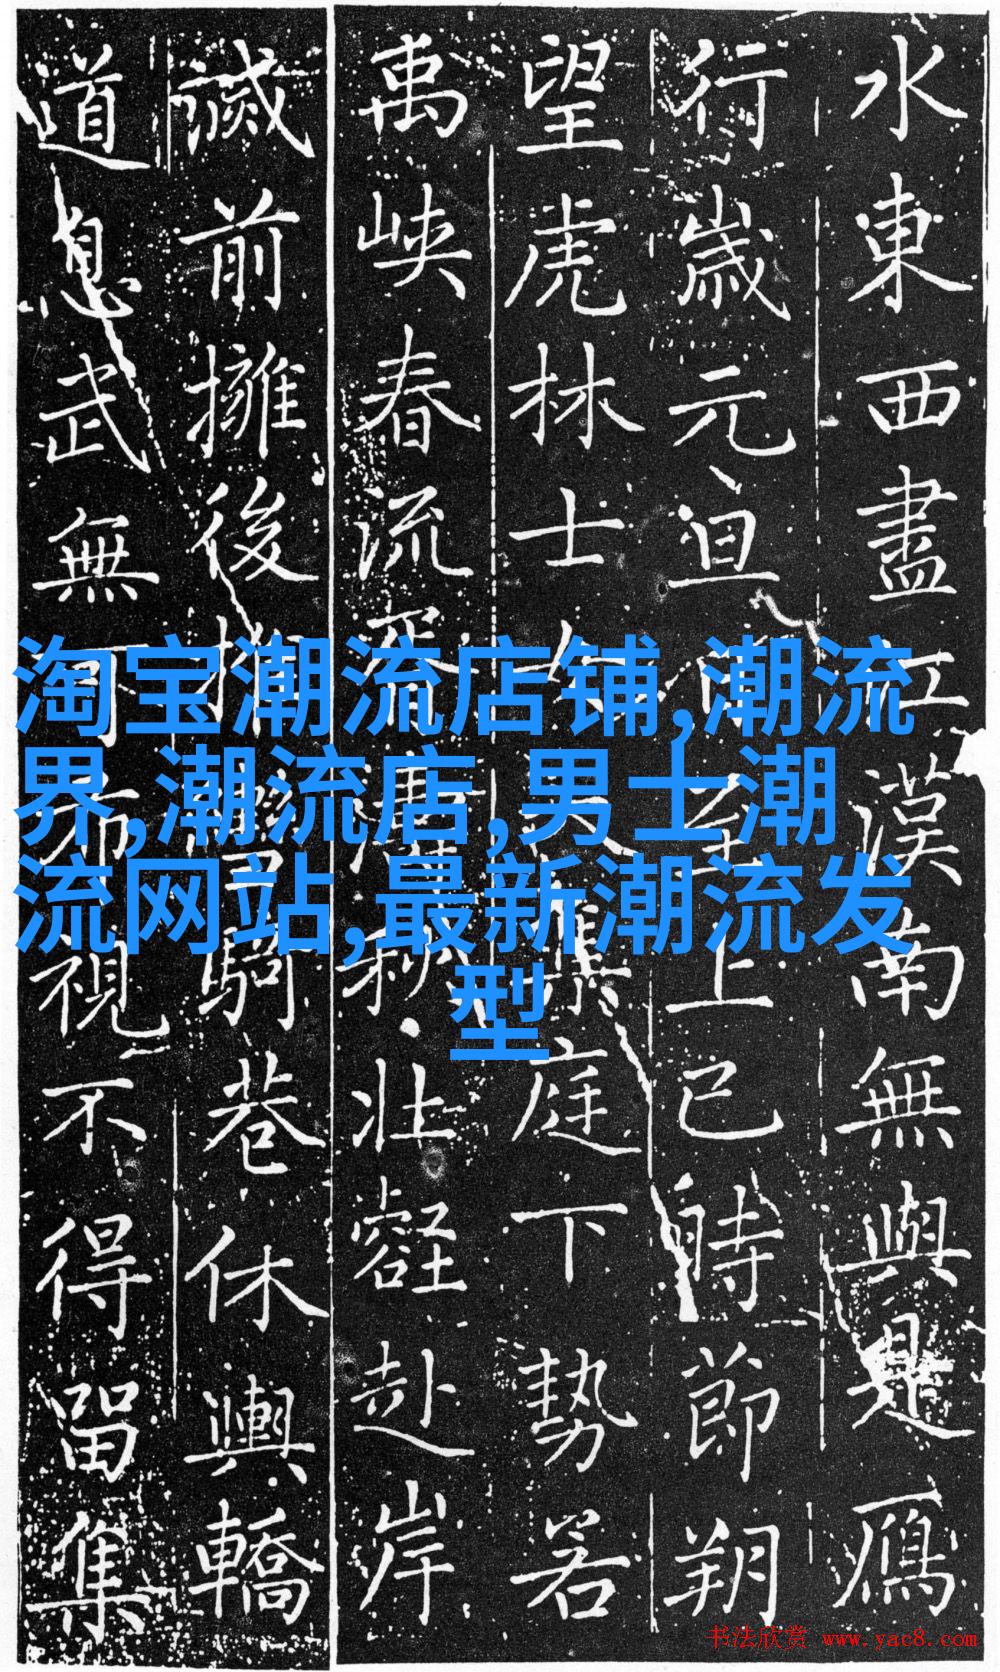 水東西盡江漢南無與是鴈
行歲元旦至上巳時節朔
望虎林士女集庭下勢若
禹峽春流秋壯壑赴岸
滅前擁後推騎巷休輿轎
道息武無可布視不得留集
淘宝潮流店铺,潮流
界,潮流店,男士潮
流网站,最新潮流发
型
书法欣赏 www.yac8.com